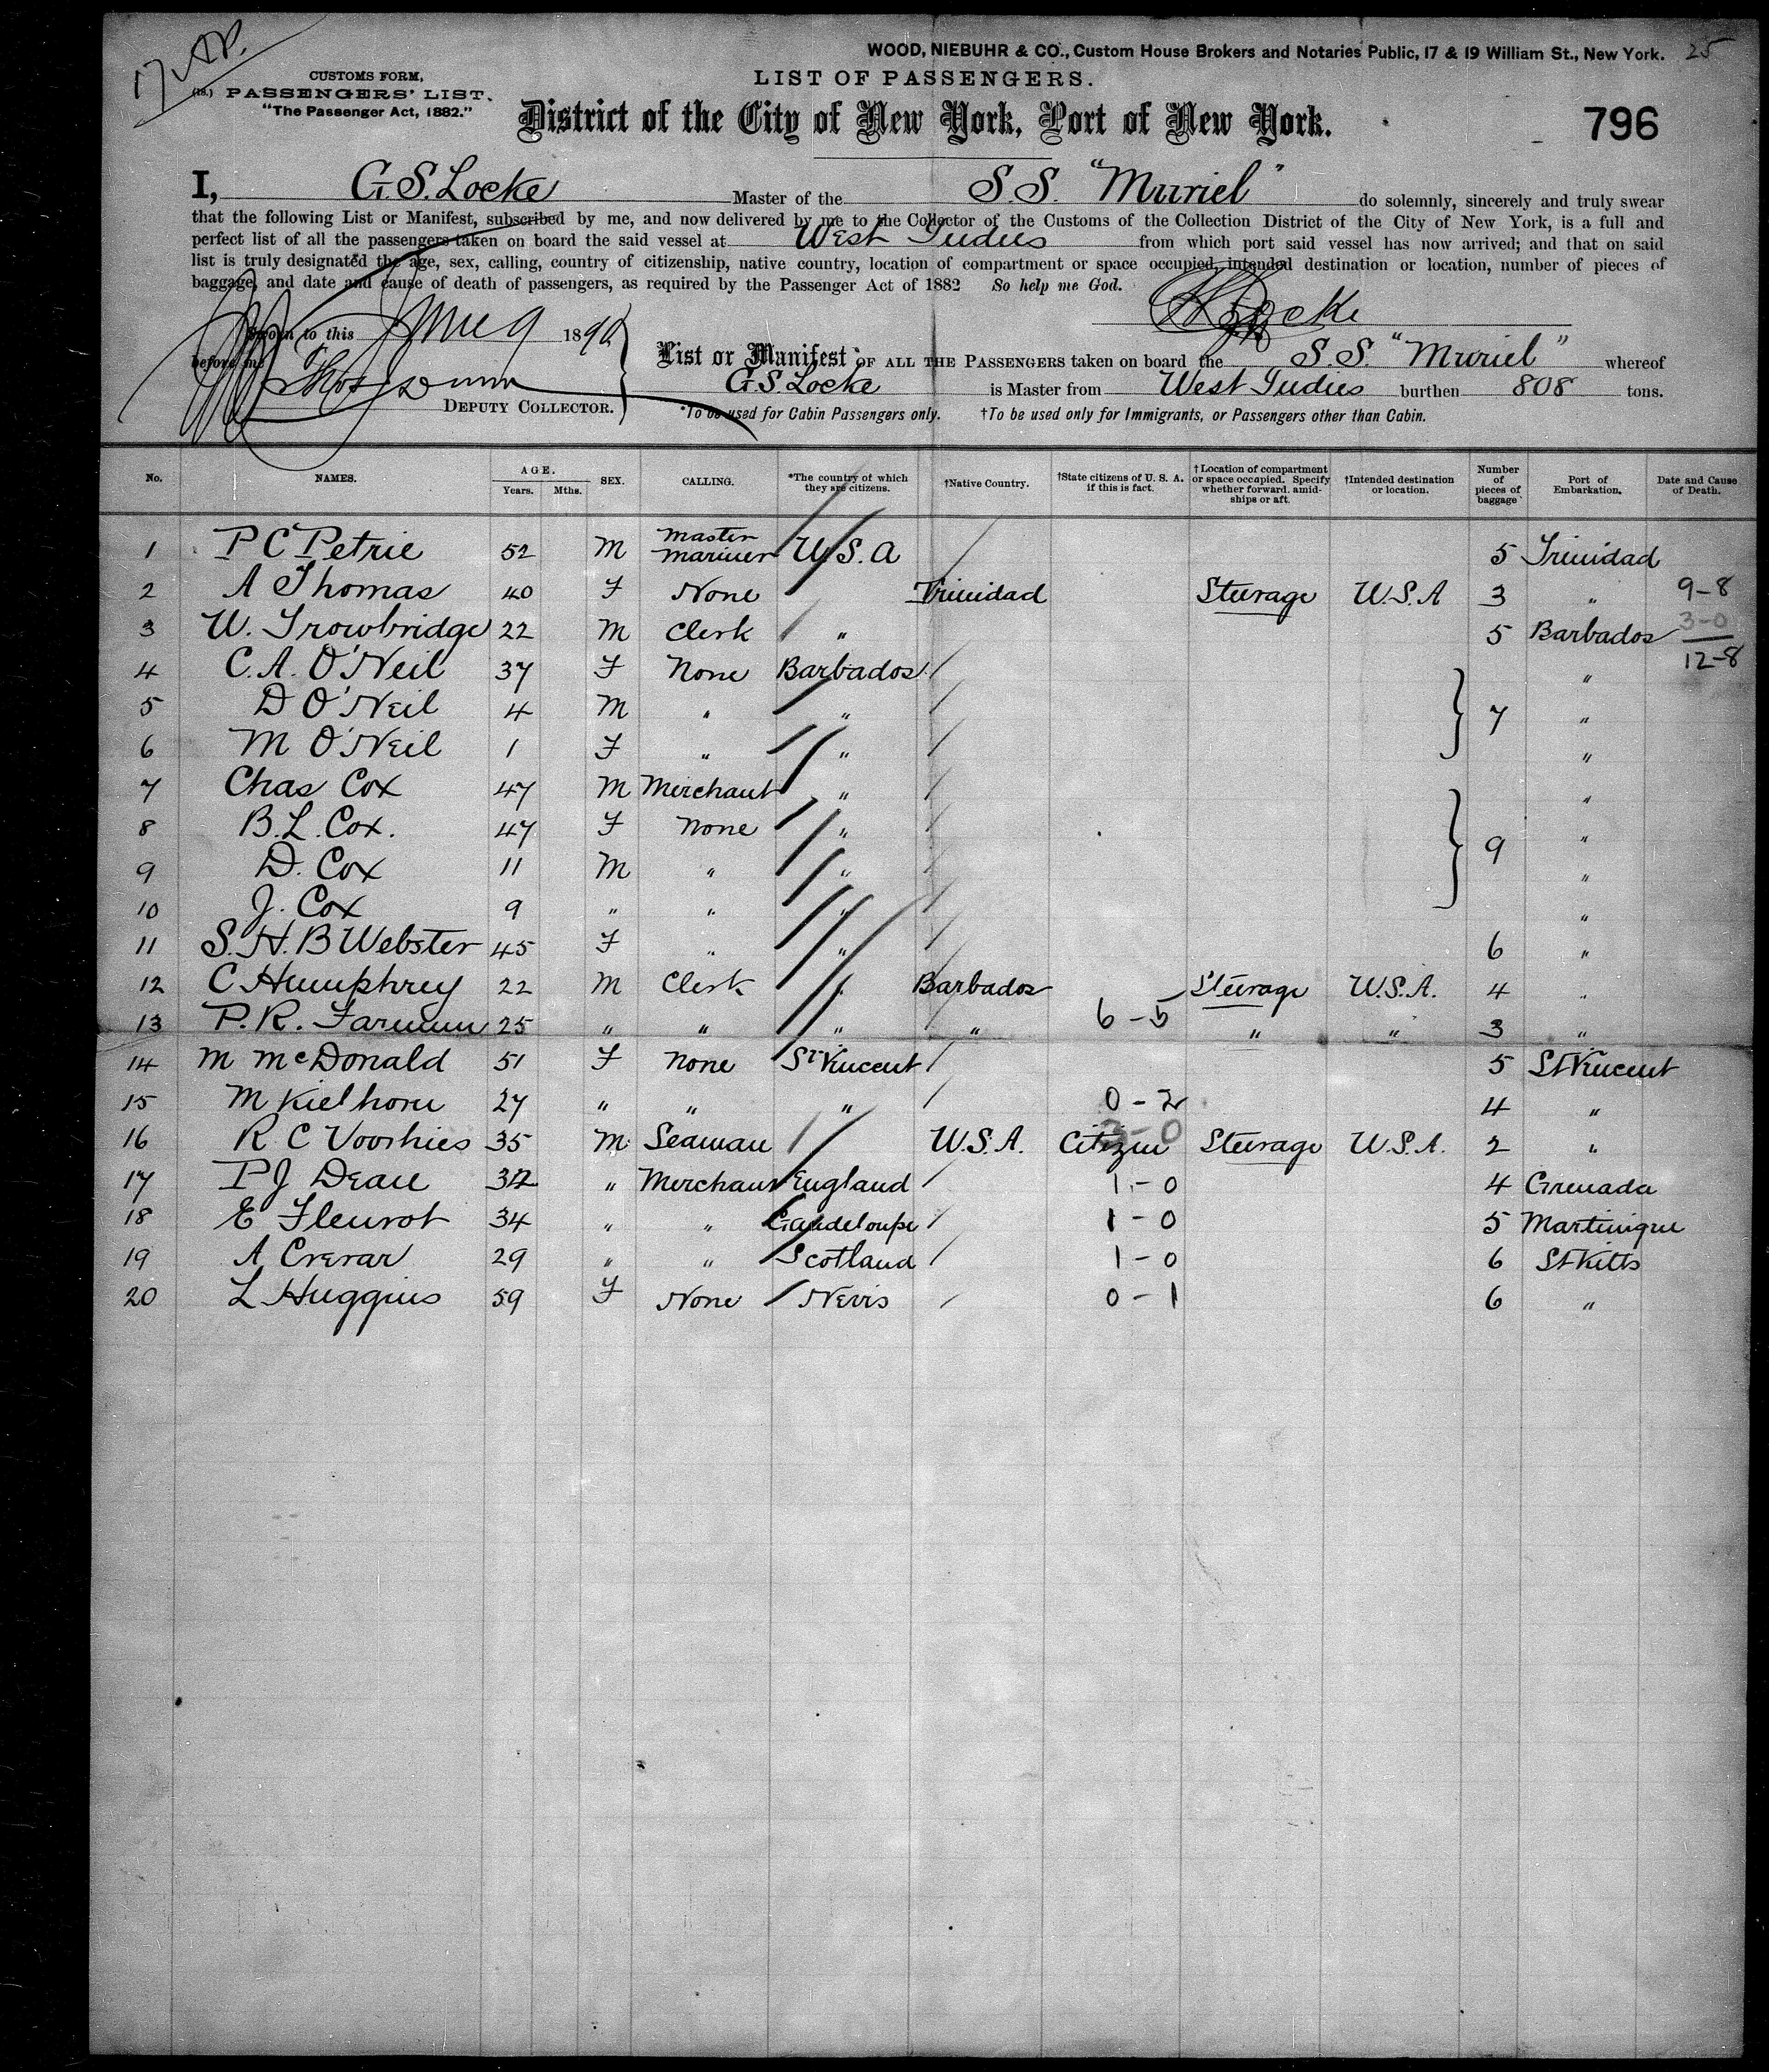 17 AP.
WOOD, NIEBUHR & CO., Custom House Brokers and Notaries Public, 17 & 19 William St., New York. 25
CUSTOMS FORM,
(18.) PASSENGERS' LIST.
"The Passenger Act, 1882."
LIST OF PASSENGERS.
District of the City of New York, Port of New York.
796
I, G. S. Locke Master of the S.S. "Muriel" do solemnly, sincerely and truly swear
that the following List or Manifest, subscribed by me, and now delivered by me to the Collector of the Customs of the Collection District of the City of New York, is a full and
perfect list of all the passengers taken on board the said vessel at West Indies from which port said vessel has now arrived; and that on said
list is truly designated the age, sex, calling, country of citizenship, native country, location of compartment or space occupied, intended destination or location, number of pieces of
baggage, and date and cause of death of passengers, as required by the Passenger Act of 1882 So help me God.
Locke
Sworn to this June 9 1890
before me
DEPUTY COLLECTOR.
List or Manifest OF ALL THE PASSENGERS taken on board the S.S. "Muriel" whereof
G. S. Locke is Master from West Indies burthen 808 tons.
*To be used for Cabin Passengers only. †To be used only for Immigrants, or Passengers other than Cabin.
No. NAMES. AGE. Years. Mths. SEX. CALLING. *The country of which they are citizens. †Native Country. †State citizens of U. S. A. if this is fact. †Location of compartment or space occupied. Specify whether forward, amidships or aft. †Intended destination or location. Number of pieces of baggage Port of Embarkation. Date and Cause of Death.
1 P C Petrie 52 M Master Mariner U.S.A 5 Trinidad
2 A Thomas 40 F None Trinidad Steerage U.S.A 3 " 9-8
3 W. Trowbridge 22 M Clerk " 5 Barbados 3-0
4 C. A. O'Neil 37 F None Barbados " 12-8
5 D O'Neil 4 M " " 7 "
6 M O'Neil 1 F " " "
7 Chas Cox 47 M Merchant " "
8 B. L. Cox. 47 F None " "
9 D. Cox 11 M " " 9 "
10 J. Cox 9 " " " "
11 S. H. B Webster 45 F " " 6 "
12 C Humphrey 22 M Clerk " Barbados Steerage U.S.A. 4 "
13 P. R. 25 " " " " 6-5 " " 3 "
14 M McDonald 51 F None St Vincent 5 St Vincent
15 M Kielhorn 27 " " " 0-2 4 "
16 R C Voorhies 35 M Seaman U.S.A. 3-0 Citizen Steerage U.S.A. 2 "
17 P J Dean 34 " Merchant England 1-0 4 Grenada
18 E Fleurot 34 " " Gaudeloupe 1-0 5 Martinique
19 A Crerar 29 " " Scotland 1-0 6 St Kitts
20 L Huggins 59 F None Nevis 0-1 6 "